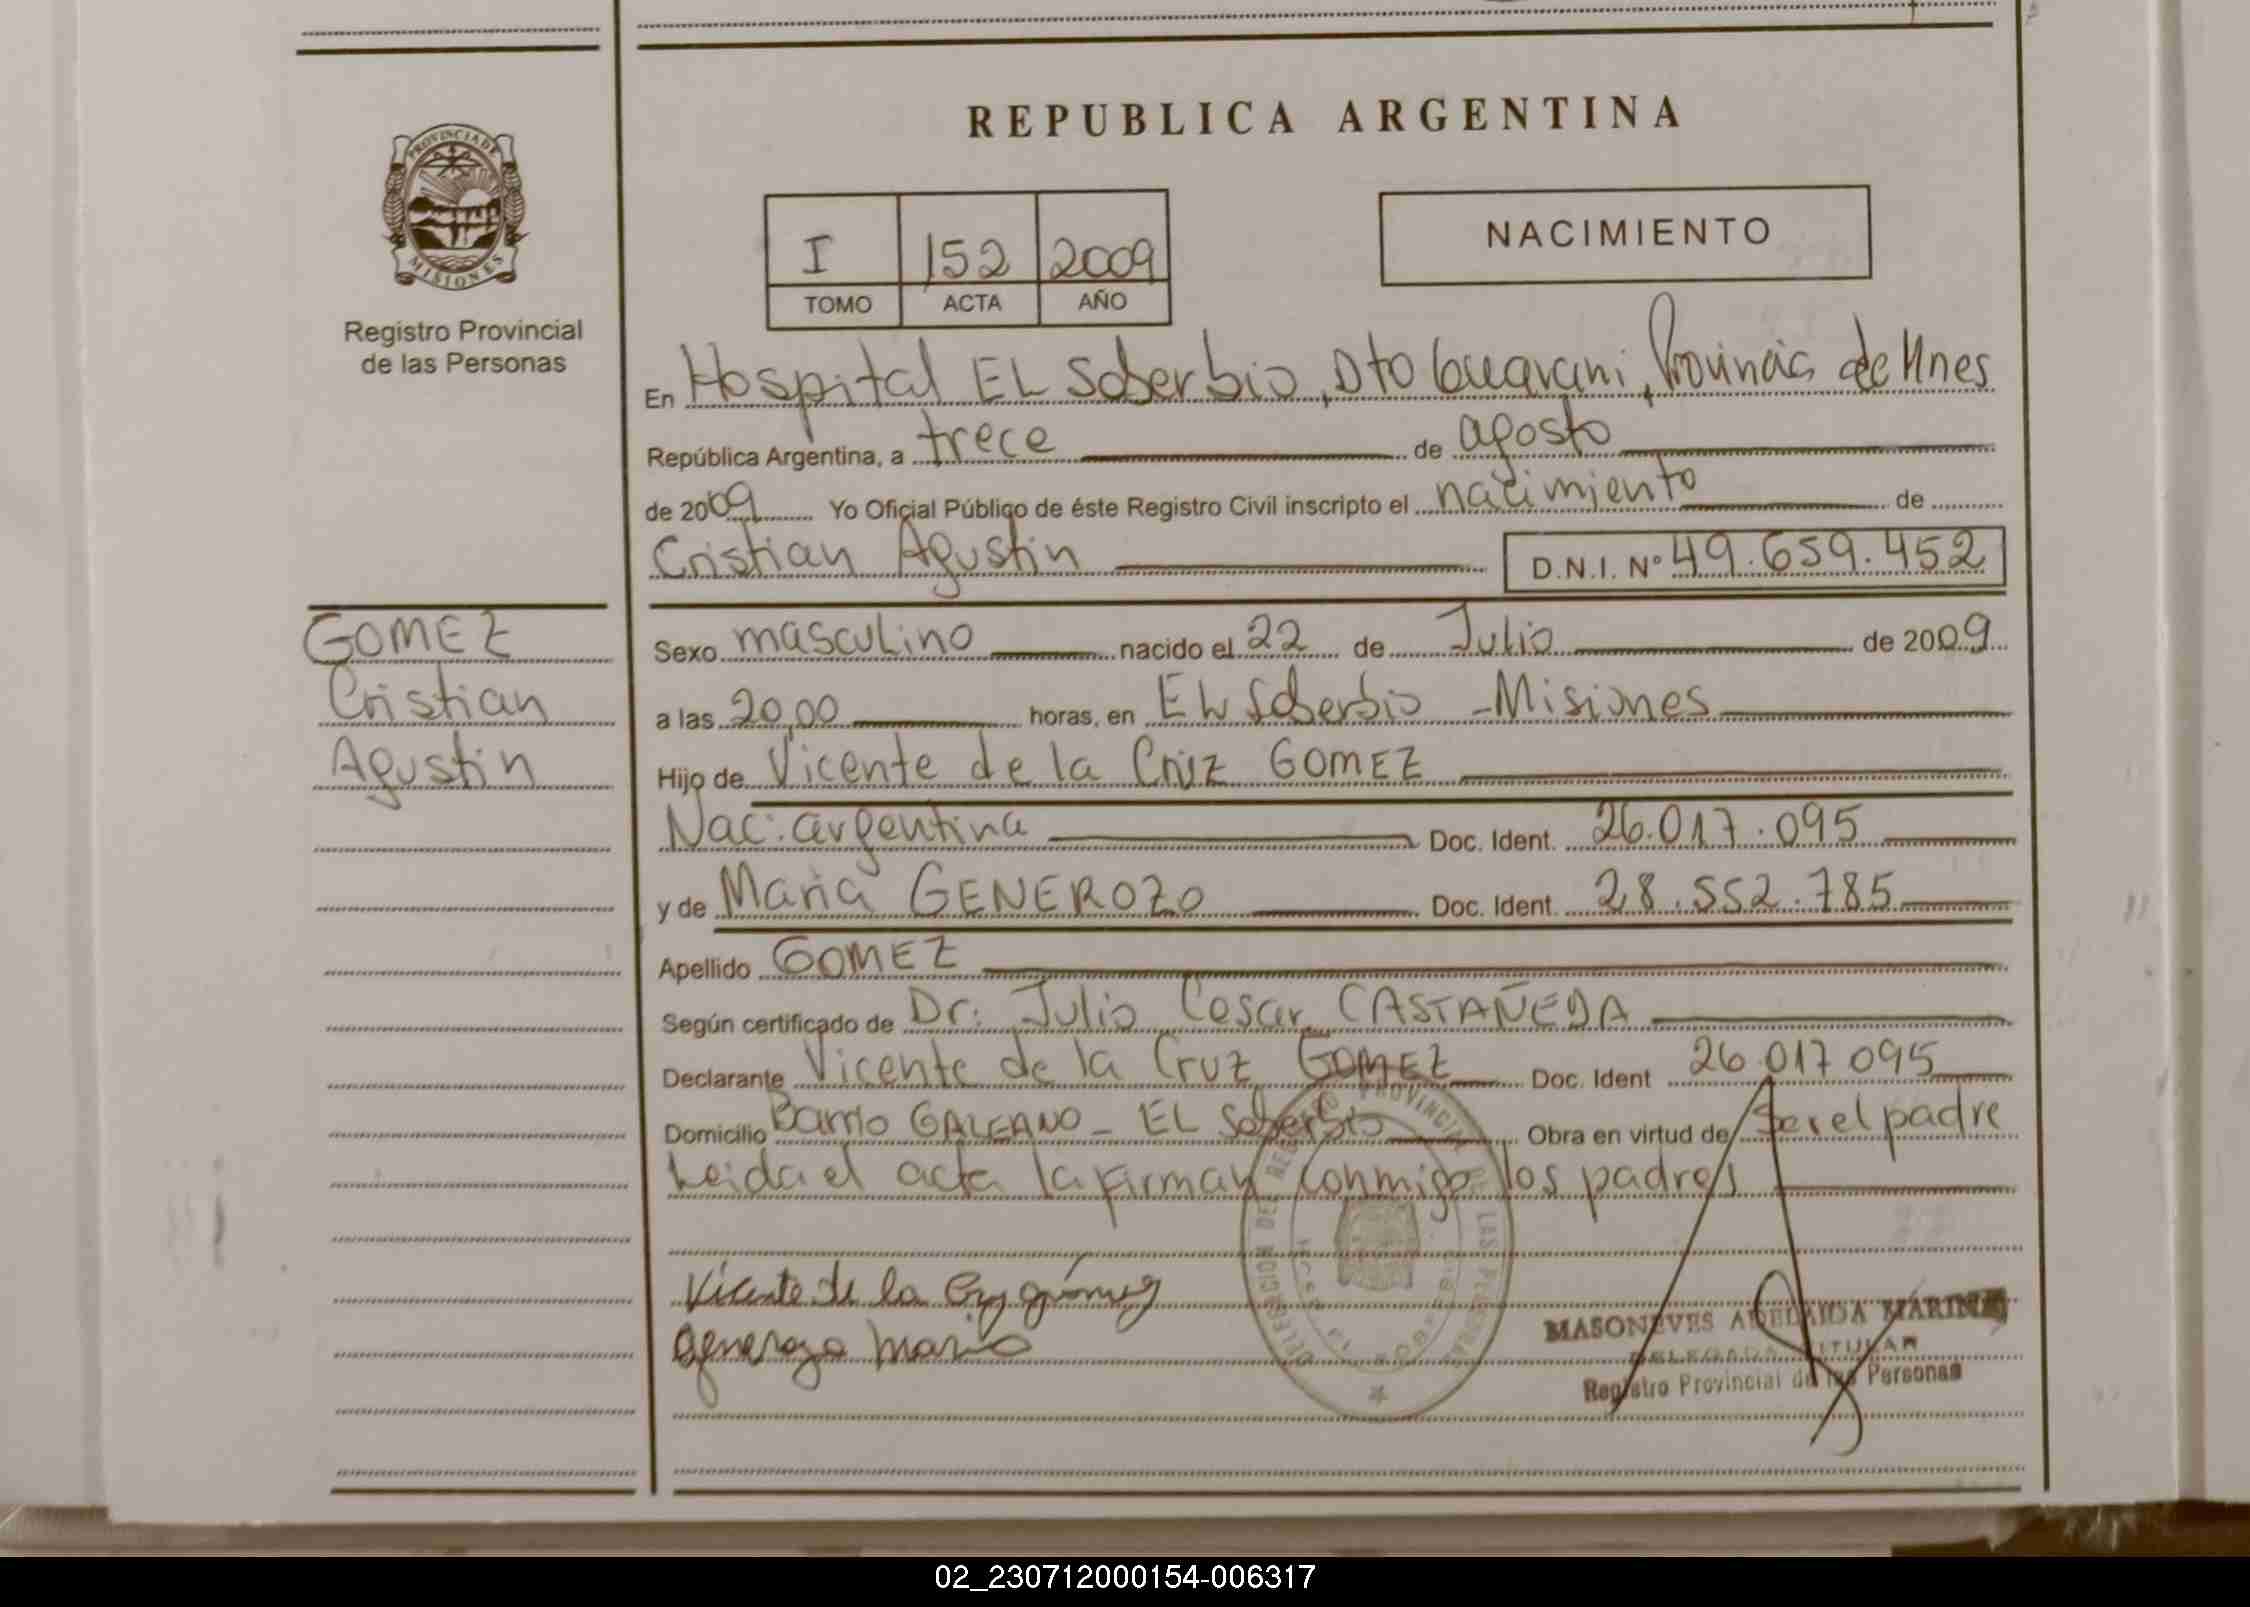 REPUBLICA ARGENTINA
PROVINCIA DE
MISIONES
Registro Provincial
de las Personas
I 152 2009
TOMO ACTA AÑO
NACIMIENTO
En Hospital EL Soberbio, Dto Guarani, Provincia de Mnes
República Argentina, a trece de agosto
de 2009 Yo Oficial Público de éste Registro Civil inscripto el nacimiento de
Cristian Agustin D.N.I. Nº 49.659.452
GOMEZ
Cristian
Agustin
Sexo masculino nacido el 22 de Julio de 2009
a las 20,00 horas, en EL Soberbio - Misiones
Hijo de Vicente de la Cruz GOMEZ
Nac: argentina Doc. Ident. 26.017.095
y de Maria GENEROZO Doc. Ident. 28.552.785
Apellido GOMEZ
Según certificado de Dr: Julio Cesar CASTAÑEDA
Declarante Vicente de la Cruz GOMEZ Doc. Ident 26.017 095
Domicilio Barrio GALEANO - EL Soberbio Obra en virtud de Ser el padre
Leida el acta la firman conmigo los padres
Vicente de la Cruz gómez
generozo maria
DELEGACION DEL REGISTRO PROVINCIAL DE LAS PERSONAS
MASONEVES ADELAIDA MARINA
DELEGADA TITULAR
Registro Provincial de las Personas
02_230712000154-006317